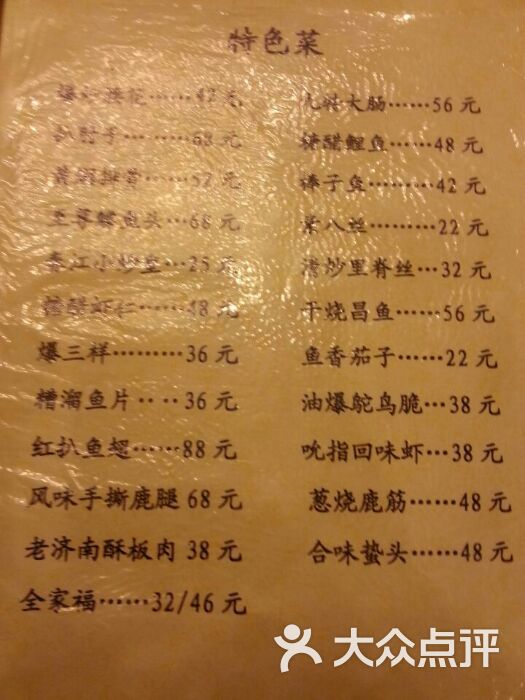 特色菜
爆炒腰花……42 元
扒肘子……68 元
黄焖排骨……52 元
至尊鲽鱼头…68 元
春江小炒皇…25 元
糖醋虾仁……48 元
爆三样………36 元
糟溜鱼片‥‥36 元
红扒鱼翅……88 元
风味手撕鹿腿 68 元
老济南酥板肉 38 元
全家福……32/46 元
九转大肠……56 元
糖醋鲤鱼……48 元
棒子鱼………42 元
炒八丝………22 元
清炒里脊丝…32 元
干烧昌鱼……56 元
鱼香茄子……22 元
油爆鸵鸟脆…38 元
吮指回味虾…38 元
葱烧鹿筋……48 元
合味蛰头……48 元
大众点评